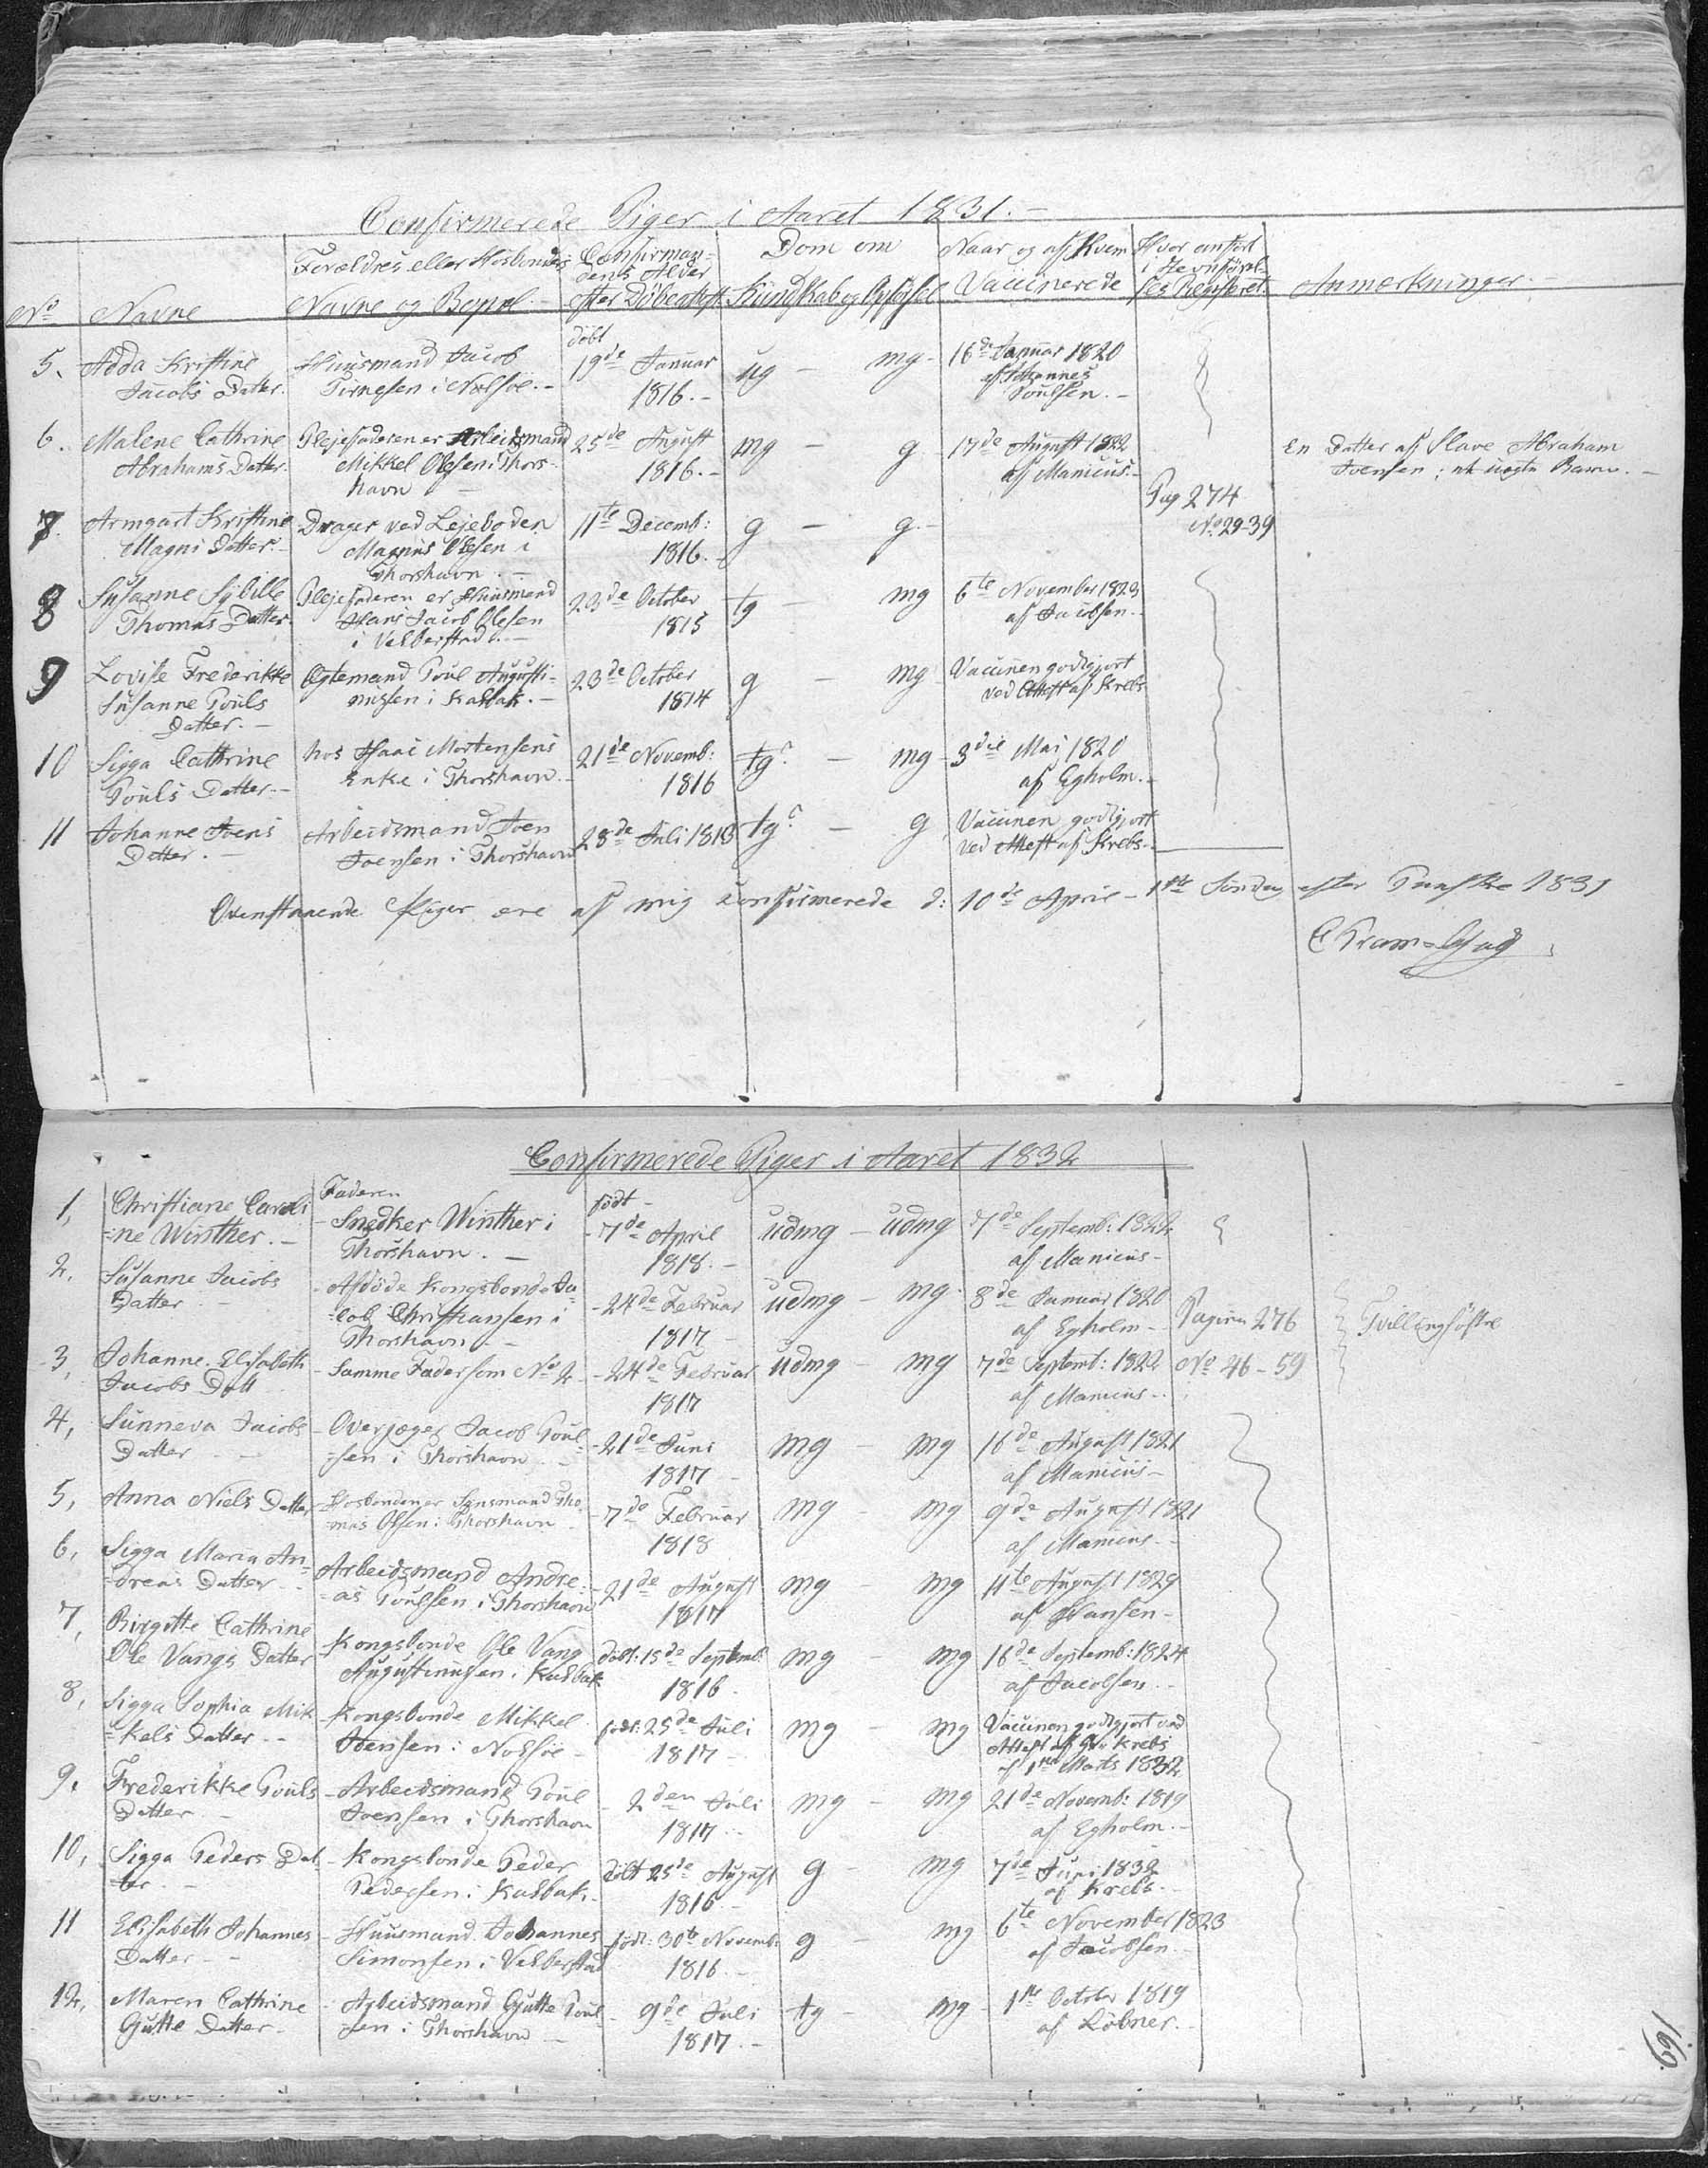 Confirmerede Piger i Aaret 1831. –
No
Navne
Forældres eller Hosbondes
Navne og Bopæl –
Confirman=
dents Alder
efter Döbeattest
Dom om
Kundskab og Opförsel
Naar og af Hvem
Vaccinerede
Hvor anfört
i Jevnförel=
ses Registeret.
Anmærkninger –
5. Adda Kristine
Jacobs Datter.
Huusmand Jacob
i Nolsöe. –
döbt
19de Januar
1816. –
ug – mg –
16de Januar 1820
af Johannes
Poulsen. –
6. Malene Cathrine
Abrahams Datter.
Plejefaderen er Arbeidsmand
Mikkel Olesen i Thors=
havn –
25de August
1816. –
mg – g
17de August 1822
af Manicus. –
En Datter af Slave Abraham
Joensen; et uægte Barn. –
Pag 274
No 29–39
7. Armgart Kristine
Magni Datter. –
Drager ved Lejeboden
Magnus Olesen i
Thorshavn. –
11te Decemb:
1816. –
g – g. –
8 Susanne Sybille
Thomas Datter
Plejefaderen er Huusmand
Hans Jacob Olesen
i Velberstad. –
23de October
1815
tg – mg
6te November 1823
af Jacobsen. –
9 Lovise Frederikke
Susanne Pouls
Datter. –
Ægtemand Poul Augusti=
nussen i Kalbak. –
23de October
1814
g – mg
Vaccinen godtgjort
ved Attest af Krebs
10 Sigga Cathrine
Pouls Datter. –
hos Haai Mortensens
Enke i Thorshavn. –
21de Novemb:
1816
tg? – mg –
3die Mai 1820
af Egholm. –
11 Johanne Joens
Datter. –
Arbeidsmand Joen
Joensen i Thorshavn
28de Juli 1813
tg? – g
Vaccinen godtgjort
ved Attest af Krebs. –
Ovenstaaende Piger ere af mig confirmerede d: 10de April – 1ste Söndag efter Paaske 1831
Confirmerede Piger i Aaret 1832
1, Christiane Caroli
=ne Winther. –
Faderen
– Snedker Winther i
Thorshavn. –
födt –
– 7de April
1818. –
udmg – udmg
7de Septemb: 1822
af Manicus –
2, Susanne Jacobs
Datter –
– Afdöde Kongsbonde Ja
=cob Christiansen i
Thorshavn –
– 24de Februar
1817 –
udmg – mg.
8de Januar 1820
af Egholm –
Pagina 276
Tvillingsöstre
3, Johanne Elisabeth
Jacobs Datt
– Samme Fader som No 2 –
– 24de Februar
1817
udmg – mg
7de Septemb: 1822
af Manicus –
No 46–59
4, Sunneva Jacobs
Datter –
– Overjæger Jacob Poul=
=sen i Thorshavn –
– 21de Juni
1817 –
mg mg
16de August 1821
af Manicus –
5, Anna Niels Datter
– Hosbonden er Synsmand Tho
=mas Olsen i Thorshavn –
– 7de Februar
1818
mg – mg
9de August 1821
af Manicus –
6, Sigga Maria An=
=dreas Datter –
Arbeidsmand Andre=
=as Poulsen i Thorshavn
– 21de August
1817
mg – mg
11te August 1829
af Hansen –
7, Birgitte Cathrine
Ole Vangs Datter
Kongsbonde Ole Vang
Augustinusen i Kalbak
döbt: 15de Septemb:
1816.
mg – mg
16de Septemb: 1824
af Jacobsen –
8, Sigga Sophia Mik
=kels Datter –
– Kongsbonde Mikkel
Joensen i Nolsöe –
födt: 25de Juli
1817 –
mg – mg
Vaccinen godtgjort ved
Attest af Krebs
af 1ste Marts 1832
9, Frederikke Pouls
Datter –
– Arbeidsmand Poul
Joensen i Thorshavn
– 2den Juli
1817 –
mg – mg
21de Novemb: 1819
af Egholm. –
10, Sigga Peders Dat
ter –
– Kongsbonde Peder
Pedersen i Kalbak. –
döbt 25de August
1816 –
g – mg
7de Juni 1832
af Krebs –
11 Elisabeth Johannes
Datter –
– Huusmand Johannes
Simonsen i Velberstad
födt: 30te Novemb:
1816 –
g – mg
6te November 1823
af Jacobsen –
12, Maren Cathrine
Gutte Datter –
– Arbeidsmand Gutte Poul=
=sen i Thorshavn –
– 9de Juli
1817. –
tg – mg –
1ste October 1819
af Löbner. –
169.